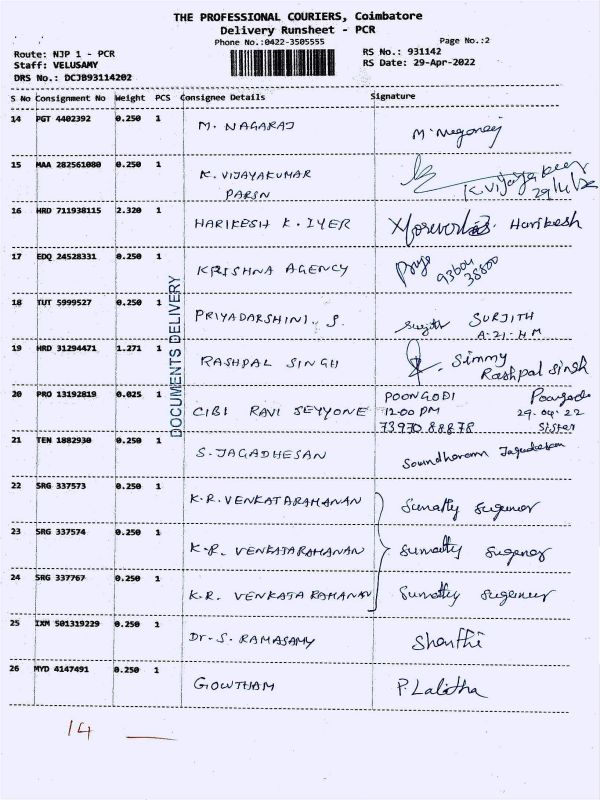 THE PROFESSIONAL COURIERS, Coimbatore
Delivery Runsheet - PCR
Phone No.:0422-3505555
Page No.:2
Route: NJP 1 - PCR
RS No.: 931142
Staff: VELUSAMY
RS Date: 29-Apr-2022
DRS No.: DCJB93114202
S No Consignment No Weight PCS Consignee Details Signature
14 PGT 4402392 0.250 1 M. NAGARAJ M. Nagaraj
15 MAA 282561080 0.250 1 K. VIJAYAKUMAR K. Vijayakumar
PARSN
16 HRD 711938115 2.320 1 HARIKESH K. IYER Harikesh
17 EDQ 24528331 0.250 1 KRISHNA AGENCY 93604
38800
18 TUT 5999527 0.250 1 PRIYADARSHINI. S. Surjith SURJITH
A-21-HM
19 HRD 31294471 1.271 1 RASHPAL SINGH Simmy
Rashpal Singh
20 PRO 13192819 0.025 1 CIBI RAVI SEYYONE POONGODI
12.00 PM 29.04.22
73970 88878 Sister
21 TEN 1882930 0.250 1 S. JAGADHESAN
22 SRG 337573 0.250 1 K.R. VENKATARAMANAN
23 SRG 337574 0.250 1 K.R. VENKATARAMANAN
24 SRG 337767 0.250 1 K.R. VENKATA RAMANAN
25 IXM 501319229 0.250 1 Dr. S. RAMASAMY Shanthi
26 MYD 4147491 0.250 1 GOWTHAM P. Lalitha
DOCUMENTS DELIVERY
14